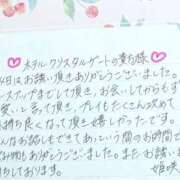 ホテル クリスタルゲートの貴方様♡
4日はお誘い頂きありがとうございました。
ースアップまでして頂き、お会いしてからもず
愛いと言って頂き、プレイもたくさん攻めて
気持ち良くなって頂き嬉しかったです。
んなお話しもできてあっという間のお時間で
み物もありがとうございました。またお誘い
ちしております。 姫咲